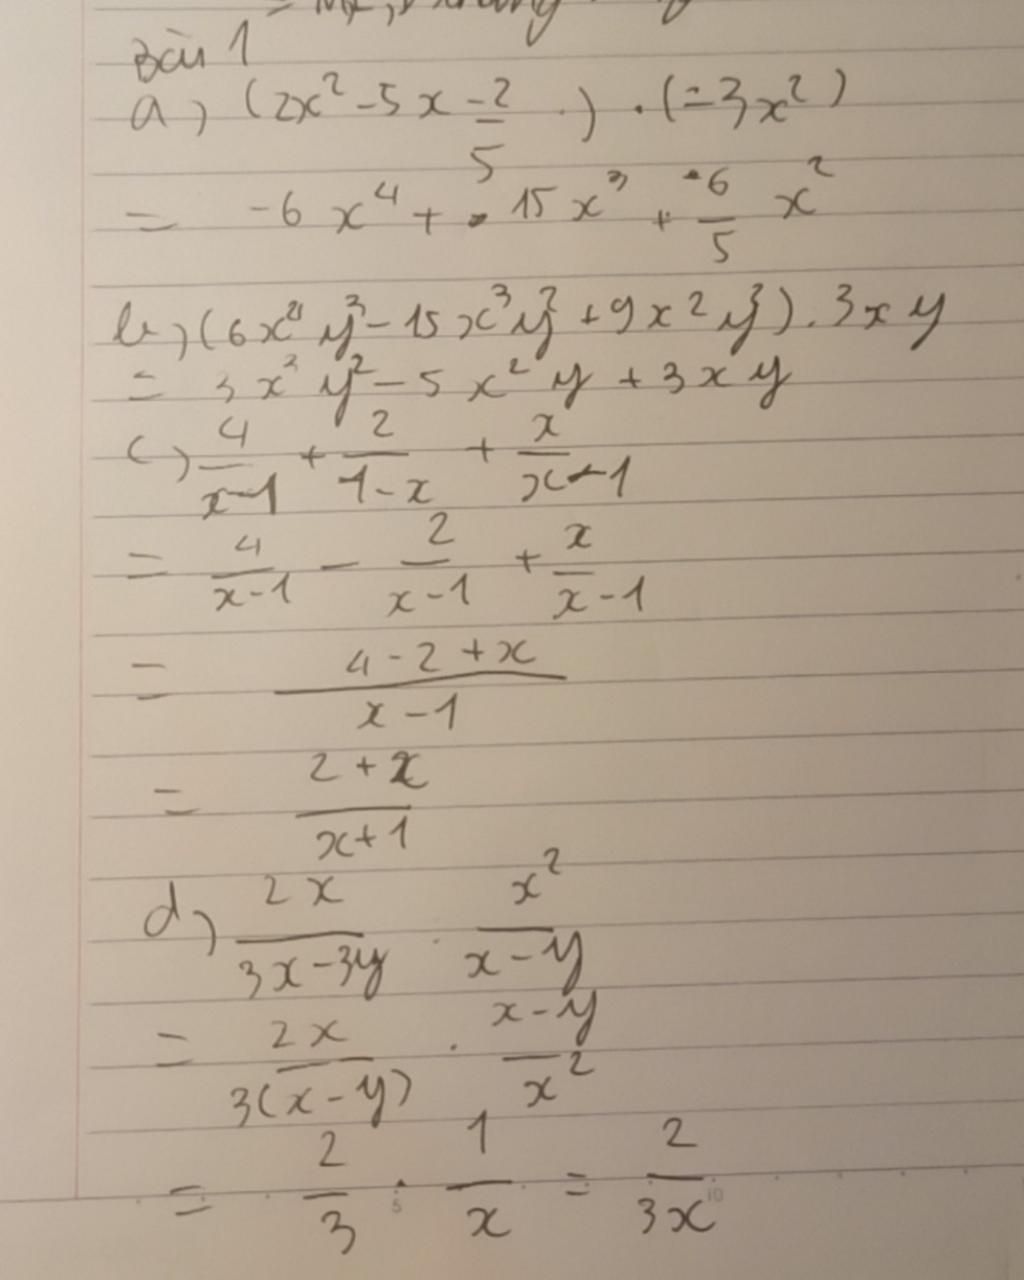 Bài 1
a) (2x² - 5x - 2/5) . (-3x²)
= -6x⁴ + 15x³ + 6/5 x²
b) (6x⁴y³ - 15x³y² + 9x²y²) . 3xy
= 3x³y² - 5x²y + 3xy
c) 4/(x-1) + 2/(1-x) + x/(x-1)
= 4/(x-1) - 2/(x-1) + x/(x-1)
= (4-2+x)/(x-1)
= (2+x)/(x+1)
d) 2x/(3x-3y) . x²/(x-y)
= 2x/(3(x-y)) . (x-y)/x²
= 2/3 . 1/x = 2/(3x)
5 10